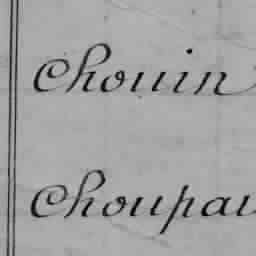 Chouin
Choupau